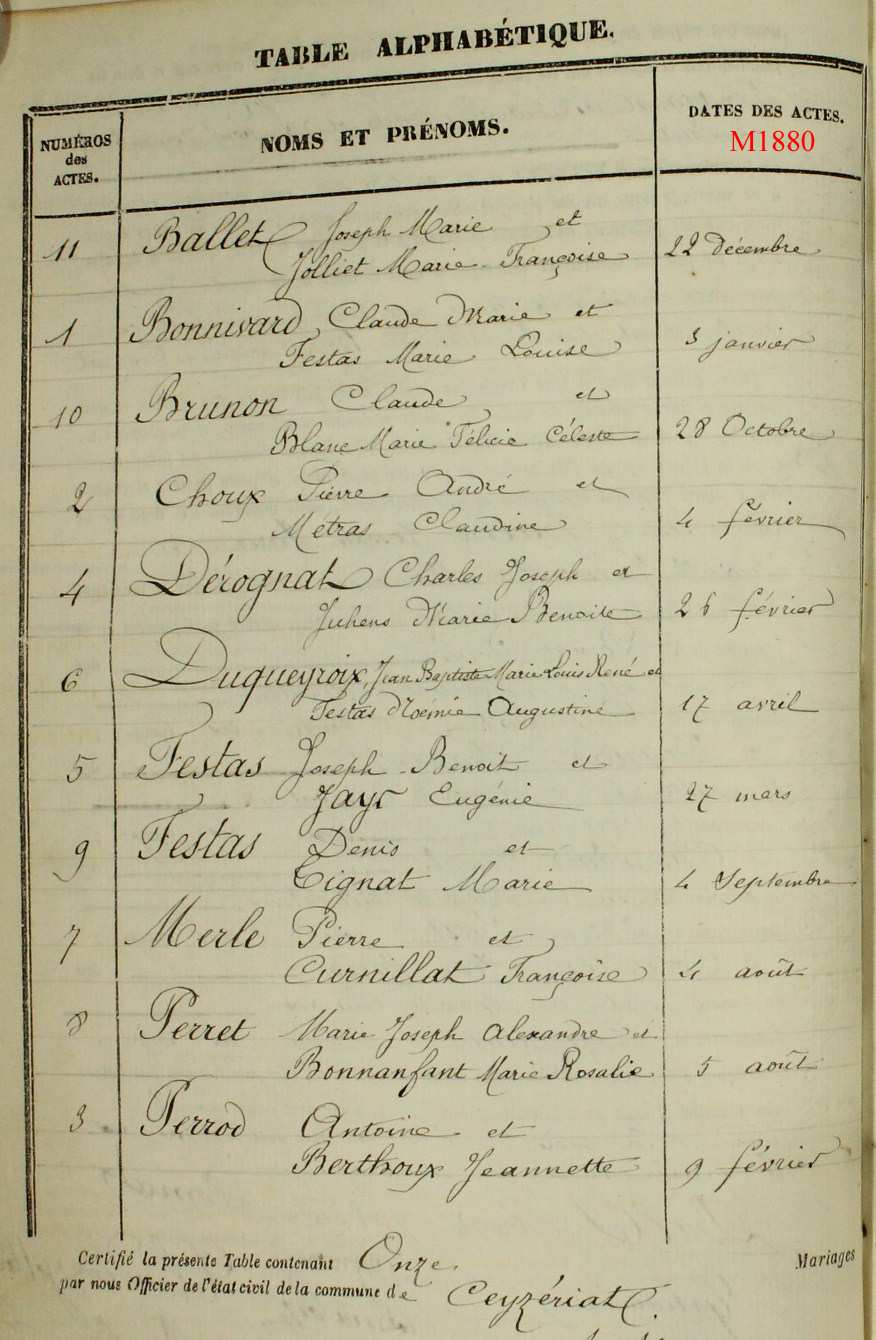 TABLE ALPHABÉTIQUE.
NUMÉROS des ACTES.
NOMS ET PRÉNOMS.
DATES DES ACTES.
M1880
11 Ballet Joseph Marie et
Jolliet Marie Françoise 22 décembre
1 Bonnivard Claude Marie et
Festas Marie Louise 3 janvier
10 Brunon Claude et
Blanc Marie Félicie Céleste 28 Octobre
2 Choux Pierre André et
Metras Claudine 4 février
4 Dérognat Charles Joseph et
Juhens Marie Benoite 26 février
6 Duqueyroix, Jean Baptiste Marie Louis René et
Festas Noémie Augustine 17 avril
5 Festas Joseph Benoit et
Jayr Eugénie 27 mars
9 Festas Denis et
Tignat Marie 4 Septembre
7 Merle Pierre et
Curnillat Françoise 4 août
8 Perret Marie Joseph Alexandre et
Bonnanfant Marie Rosalie 5 août
3 Perrod Antoine et
Berthoux Jeannette 9 février
Certifié la présente Table contenant Onze. Mariages
par nous Officier de l'état civil de la commune de Ceyzériat.